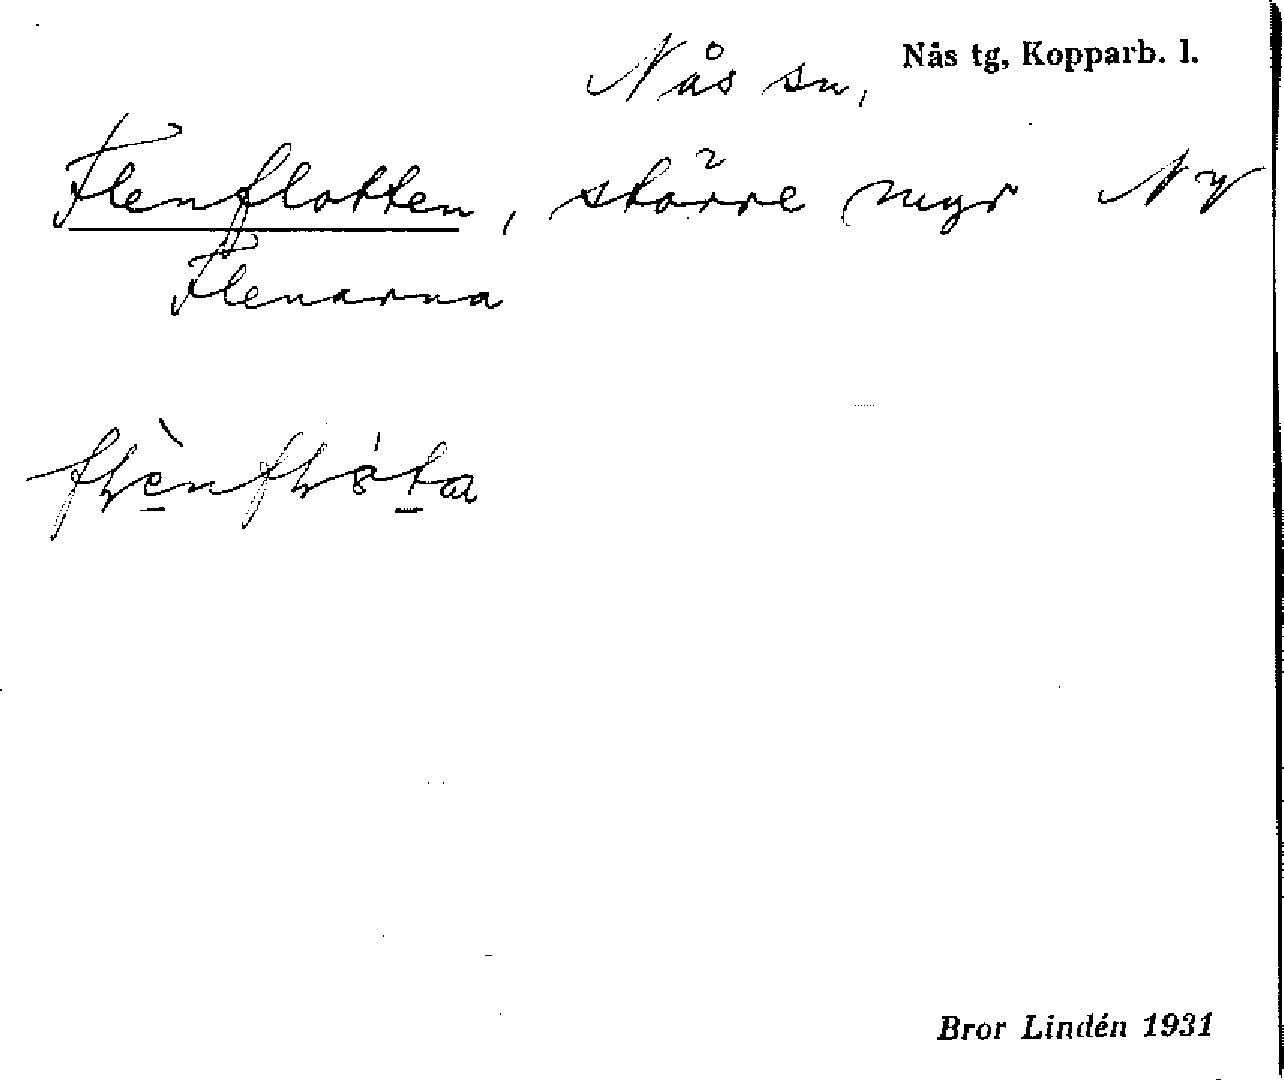 Nås sn, Nås tg, Kopparb. l.
Flenflotten, större myr NV
Flenarna
Bror Lindén 1931